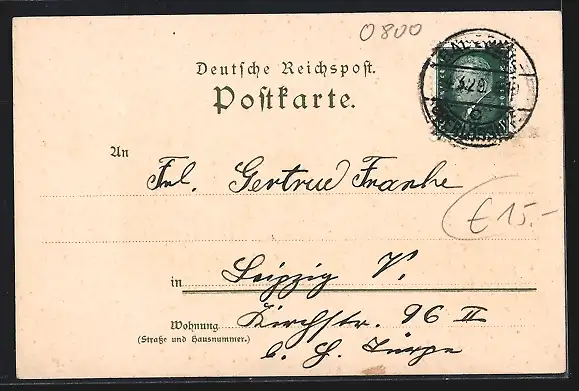 0800
Deutsche Reichspost.
Postkarte.
An
Frl. Gertrud Franke
€ 15.-
in Leipzig V.
Wohnung Kirchstr. 96 II
(Straße und Hausnummer.)
b. H.